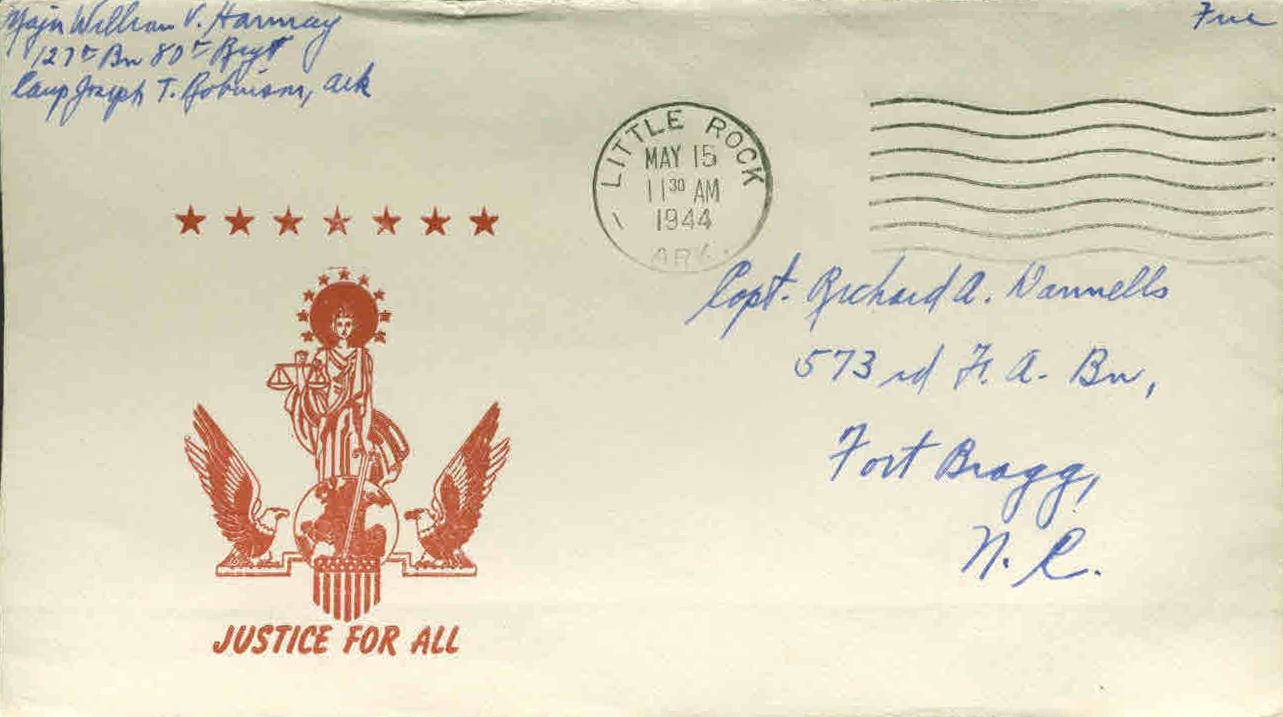 Major William V. Harmay
127th Bn 80th Regt
Camp Joseph T. Robinson, Ark
Free
LITTLE ROCK
MAY 15
11 30 AM
1944
ARK.
Capt. Richard A. Dannells
573rd F. A. Bn,
Fort Bragg,
N. C.
JUSTICE FOR ALL